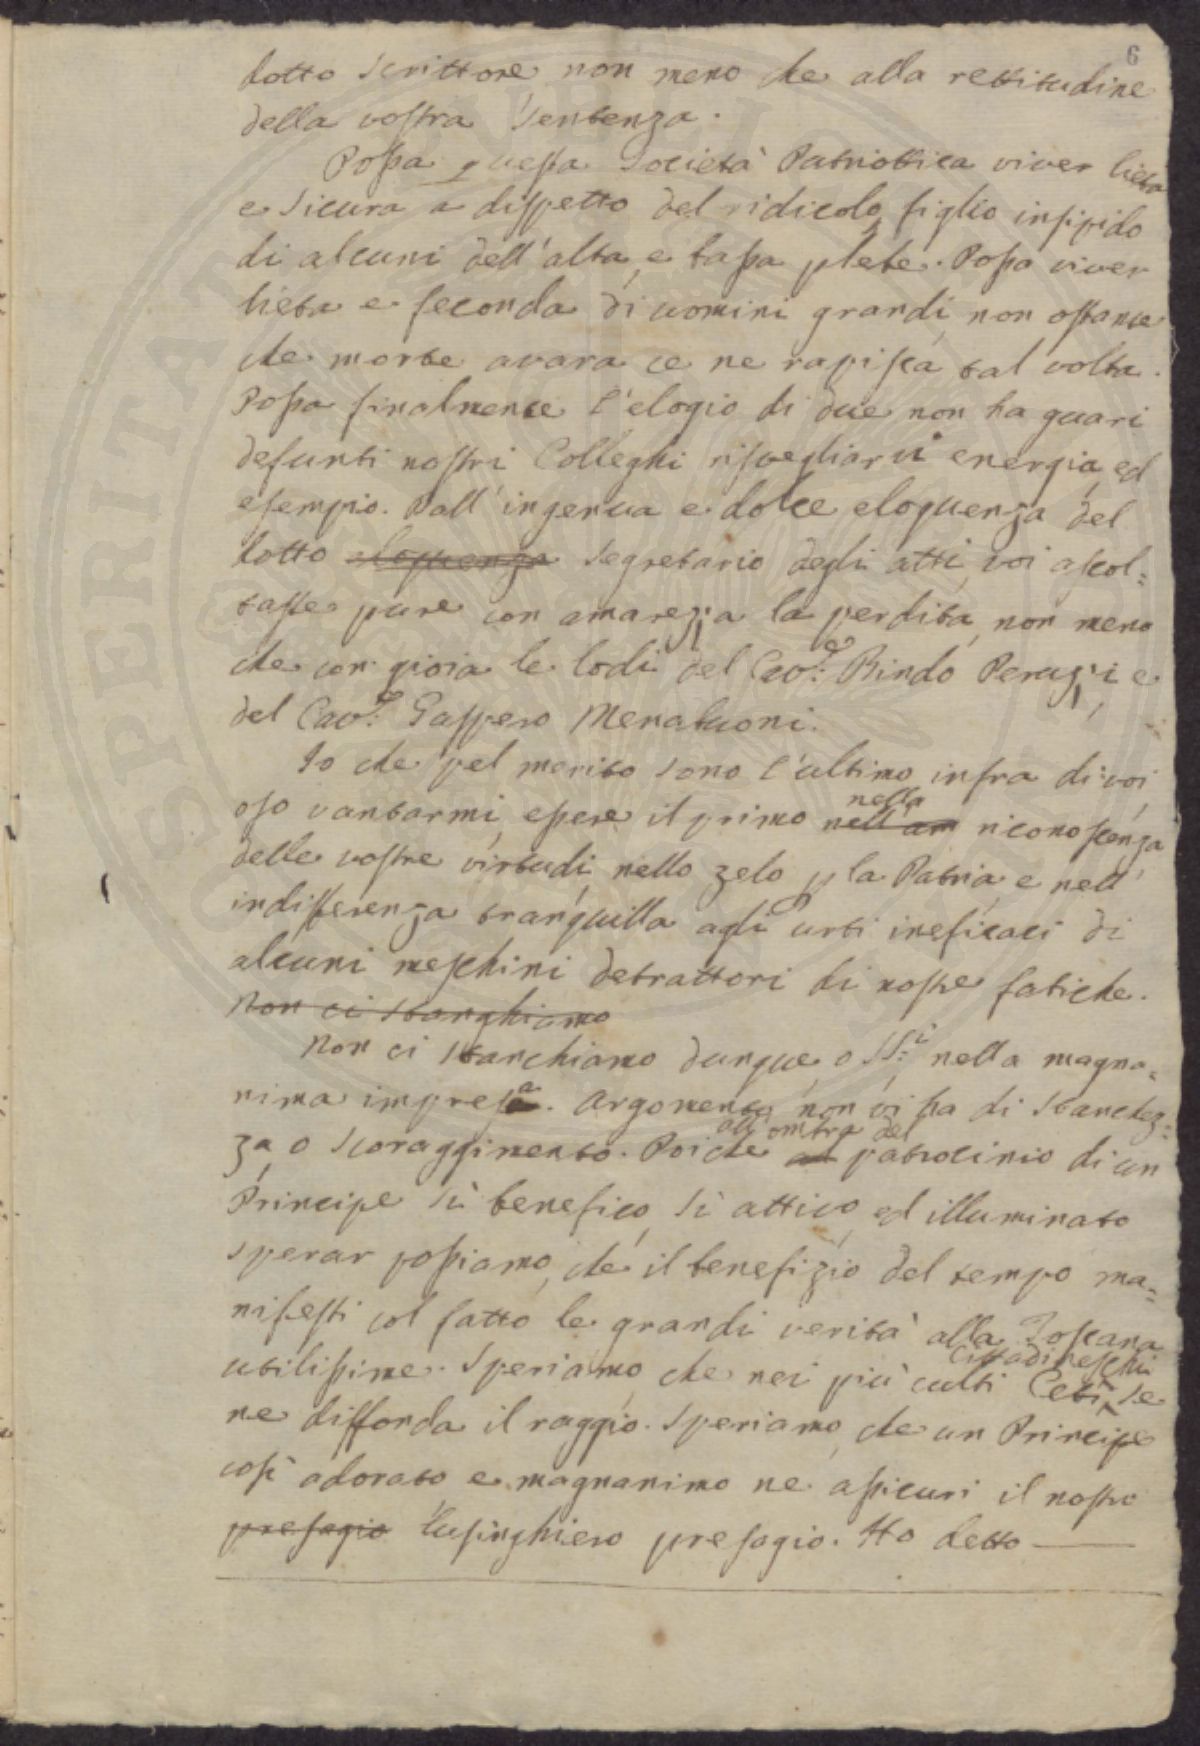 6
dotto scrittore, non meno che alla rettitudine
della vostra sentenza.
Possa questa Società Patriottica viver lieta
e sicura a dispetto del ridicolo, figlio insipido
di alcuni dell'alta, e bassa plebe. Possa viver
lieta e feconda di uomini grandi, non ostante
che morte avara ce ne rapisca tal volta.
Possa finalmente l'elogio di due non ha guari
defunti nostri Colleghi risvegliarvi energia, ed
esempio. Dall'ingenua e dolce eloquenza del
dotto eloquenza segretario degli atti, voi ascol:
taste pure con amarezza la perdita, non meno
che con gioia le lodi del Cav:e Rindo Peruzzi, e
del Cav:e Gaspero Menabuoni.
Io che pel merito sono l'ultimo infra di voi,
oso vantarmi essere il primo nell'am nella riconoscenza
delle vostre virtudi, nello zelo p la Patria, e nell'
indifferenza tranquilla agli urti ineficaci di
alcuni meschini detrattori di nostre fatiche.
Non ci stanghiamo
Non ci stanchiamo dunque, o SS:i nella magna:
nima impresa. Argomento non vi ha di stanchez:
za o scoraggimento. Poiche al all'ombra del patrocinio di un
Principe sì benefico, sì attivo, ed illuminato
sperar possiamo, che il benefizio del tempo ma:
nifesti col fatto le grandi verità alla Toscana
utilissime. Speriamo, che nei più culti Ceti Cittadineschi se
ne diffonda il raggio. Speriamo, che un Principe
così adorato e magnanimo ne assicuri il nostro
presagio lusinghiero presagio. Ho detto